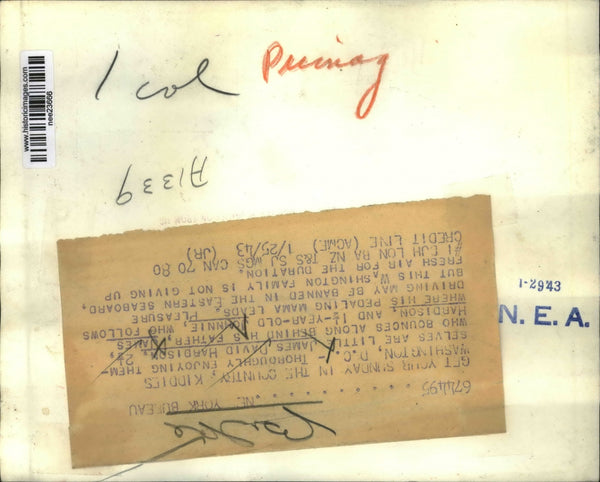 www.historicimages.com
nee23666
1 col
A1339
1-2943
N. E. A.
674495 . . . . . . . . . . NEW YORK BUREAU
GET YOUR SUNDAY IN THE COUNTRY, KIDDIES
WASHINGTON, D.C. -- THOROUGHLY ENJOYING THEM-
SELVES ARE LITTLE JAMES DAVID HARDISON, 2½,
WHO BOUNCES ALONG BEHIND HIS FATHER, JAMES
HARDISON, AND 1½-YEAR-OLD NANNIE, WHO FOLLOWS
WHERE HIS PEDALING MAMA LEADS. PLEASURE
DRIVING MAY BE BANNED IN THE EASTERN SEABOARD,
BUT THIS WASHINGTON FAMILY IS NOT GIVING UP
FRESH AIR FOR THE DURATION.
#1 EJH LON BA NZ T&S SJ WGS CAN 70 80
CREDIT LINE (ACME) 1/25/43 (JR)